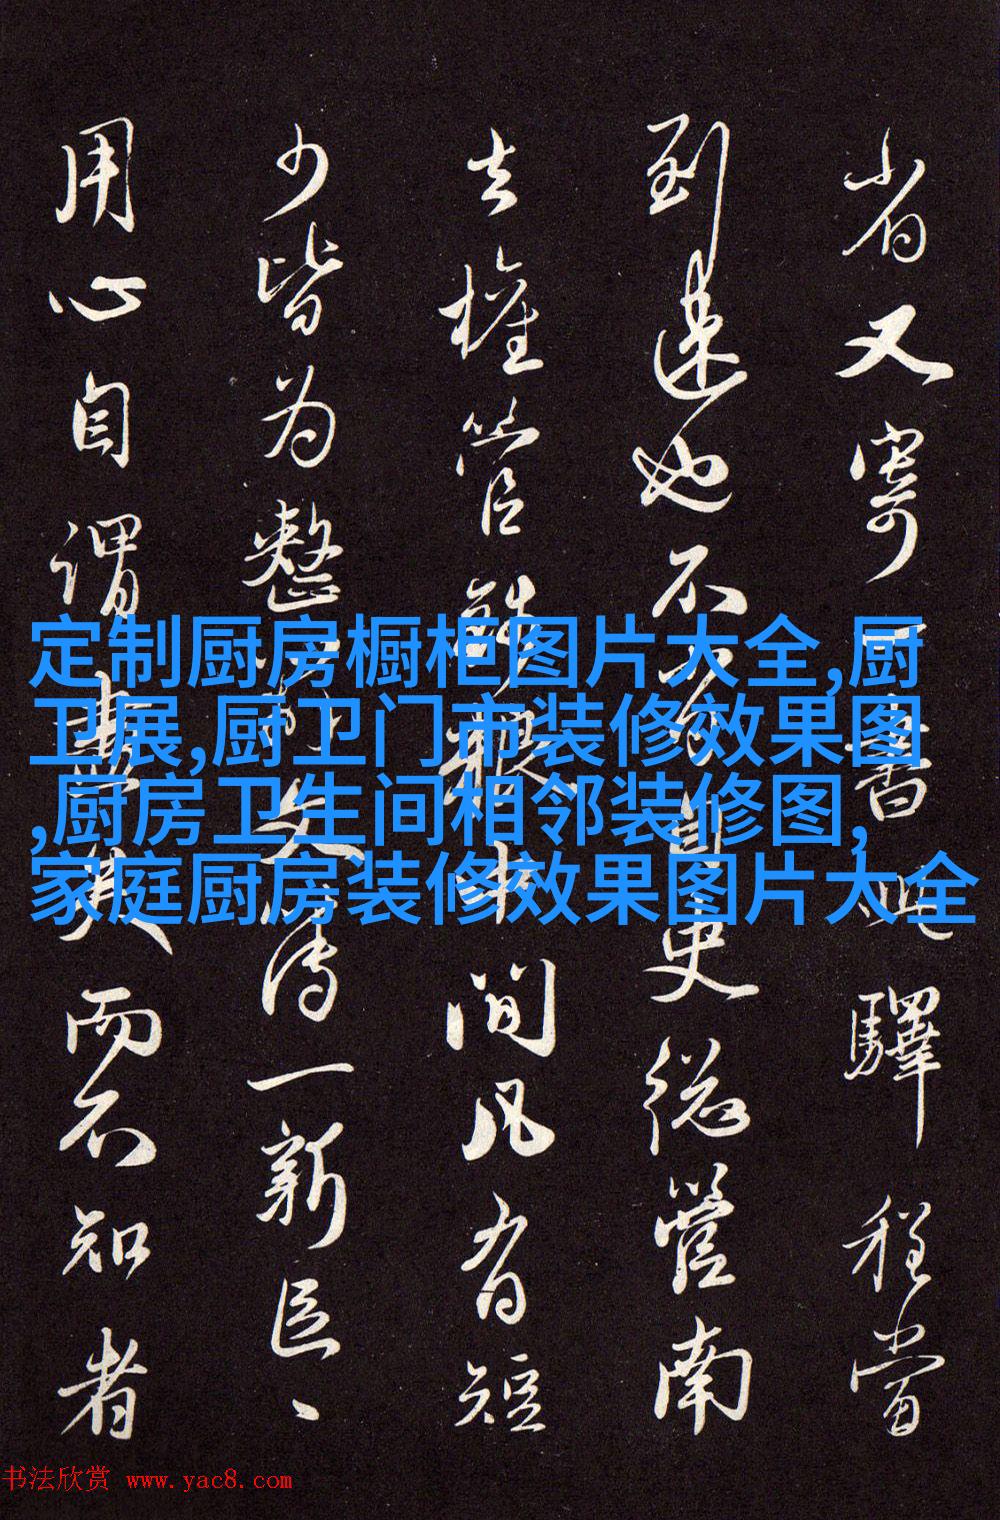 省又寄書此驛程當
到速也不史總管南
去權管中間凡有短
少皆为整文一新
用心自謂而不知者
定制厨房橱柜图片大全,厨
卫展,厨卫门市装修效果图
,厨房卫生间相邻装修图,
家庭厨房装修效果图片大全
书法欣赏 www.yac8.com